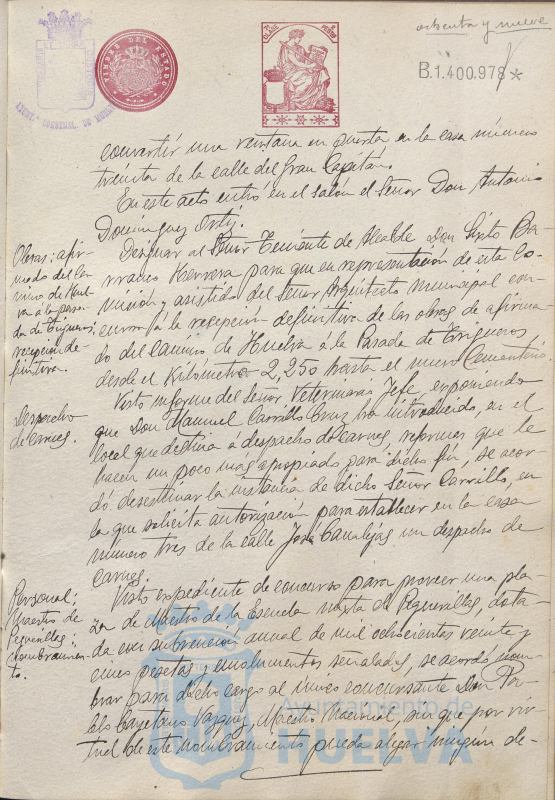 ochenta y nueve
TIMBRE DEL ESTADO
B.1.400.978*
convertir una ventana en puerta en la casa número
treinta de la calle del Gran Capitán.
En este acto entró en el salón el Señor Don Antonio
Domínguez Ortiz.
Obras: afir-
mado del Ca-
mino de Huel-
va a la pasa-
da de Trigueros;
recepción de-
finitiva.
Designar al Señor Teniente de Alcalde Don Sixto Ba-
rranco Herrera para que en representación de esta Co-
misión y asistido del Señor Arquitecto municipal con-
curra á la recepción definitiva de las obras de afirma-
do del camino de Huelva á la Pasada de Trigueros
desde el Kilómetro 2,250 hasta el nuevo Cementerio.
Despacho
de carnes.
Visto informe del Señor Veterinario Jefe, exponiendo
que Don Manuel Carrillo Cruz ha introducido, en el
local que destina a despacho de carnes, reformas que le
hacen un poco más apropiado para dicho fin, se acor-
dó desestimar la instancia de dicho Señor Carrillo, en
la que solicita autorización para establecer en la casa
número tres de la calle José Canalejas un despacho de
carnes.
Personal;
Maestro de
Peguerillas;
nombramien-
to.
Visto expediente de concurso para proveer una pla-
za de Maestro de la Escuela mixta de Peguerillas, dota-
da con subvención anual de mil ochocientas veinte y
cinco pesetas y emolumentos señalados, se acordó nom-
brar para dicho cargo al único concursante Don Pa-
blo Cayetano Vazquez, Maestro Nacional, sin que por vir-
tud de este nombramiento pueda alegar ningún de-
Ayuntamiento de
HUELVA